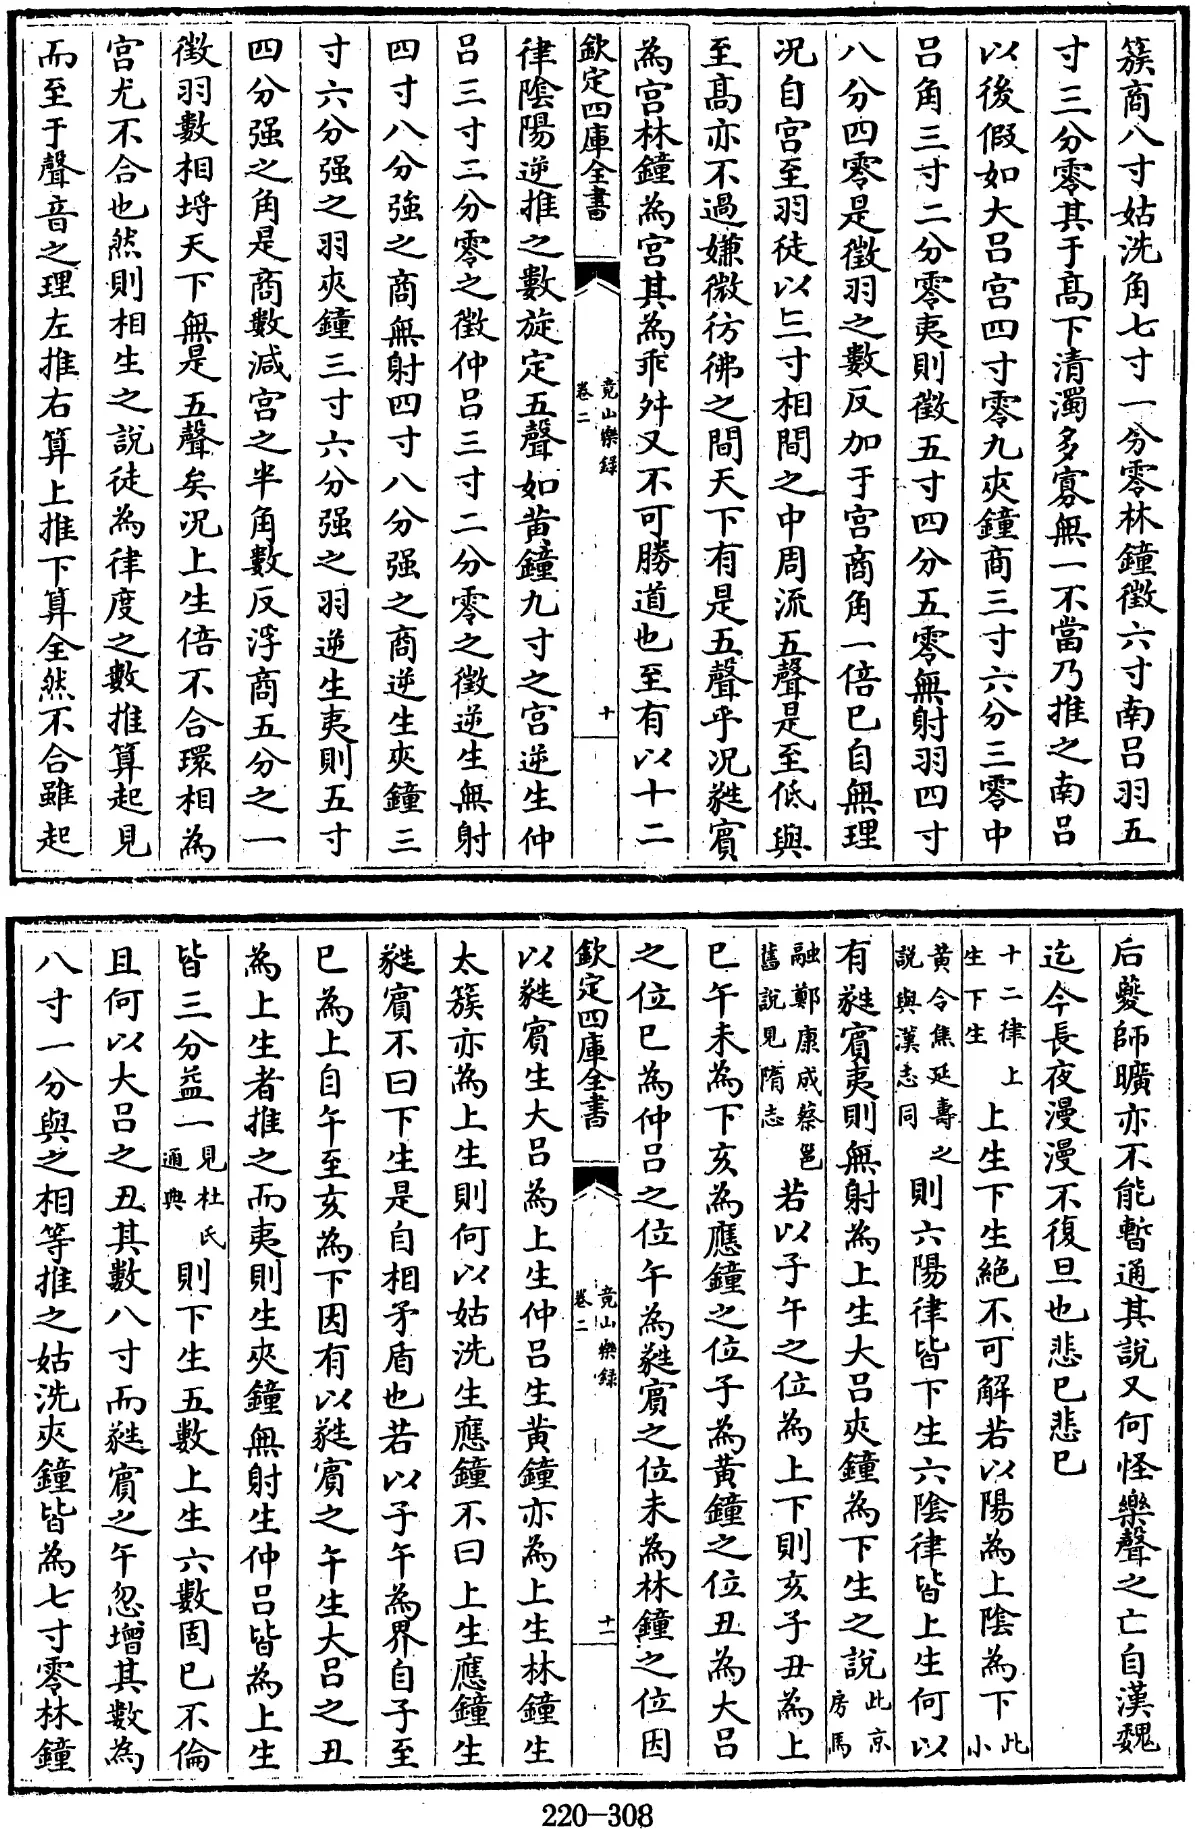 簇商八寸姑洗角七寸一分零林鐘徵六寸南呂羽五
寸三分零其于髙下清濁多寡無一不當乃推之南呂
以後假如大呂宫四寸零九夾鐘商三寸六分三零中
呂角三寸二分零夷則徵五寸四分五零無射羽四寸
八分四零是徵羽之數反加于宫商角一倍已自無理
況自宫至羽徒以三寸相間之中周流五聲是至低與
至髙亦不過嫌微彷彿之間天下有是五聲乎況蕤賓
為宫林鐘為宫其為乖舛又不可勝道也至有以十二
欽定四庫全書
竟山樂録
卷二
十
律陰陽逆推之數旋定五聲如黄鐘九寸之宫逆生仲
呂三寸二分零之徵仲呂三寸二分零之徵逆生無射
四寸八分強之商無射四寸八分强之商逆生夾鐘三
寸六分强之羽夾鐘三寸六分强之羽逆生夷則五寸
四分强之角是商數減宫之半角數反浮商五分之一
徵羽數相埒天下無是五聲矣況上生倍不合環相為
宫尤不合也然則相生之說徒為律度之數推算起見
而至于聲音之理左推右算上推下算全然不合雖起
后夔師曠亦不能暫通其說又何怪樂聲之亡自漢魏
迄今長夜漫漫不復旦也悲已悲已
十二律上
生下生
上生下生絶不可解若以陽為上陰為下
此
小
黄令焦延壽之
說與漢志同
則六陽律皆下生六陰律皆上生何以
有蕤賓夷則無射為上生大呂夾鐘為下生之說
此京
房馬
融鄭康成蔡邕
舊說見隋志
若以子午之位為上下則亥子丑為上
巳午未為下亥為應鐘之位子為黄鐘之位丑為大呂
之位巳為仲呂之位午為蕤賓之位未為林鐘之位因
欽定四庫全書
竟山樂録
卷二
十一
以蕤賓生大呂為上生仲呂生黄鐘亦為上生林鐘生
太簇亦為上生則何以姑洗生應鐘不曰上生應鐘生
蕤賓不曰下生是自相矛盾也若以子午為界自子至
巳為上自午至亥為下因有以蕤賓之午生大呂之丑
為上生者推之而夷則生夾鐘無射生仲呂皆為上生
皆三分益一
見杜氏
通典
則下生五數上生六數固已不倫
且何以大呂之丑其數八寸而蕤賓之午忽增其數為
八寸一分與之相等推之姑洗夾鐘皆為七寸零林鐘
220-308